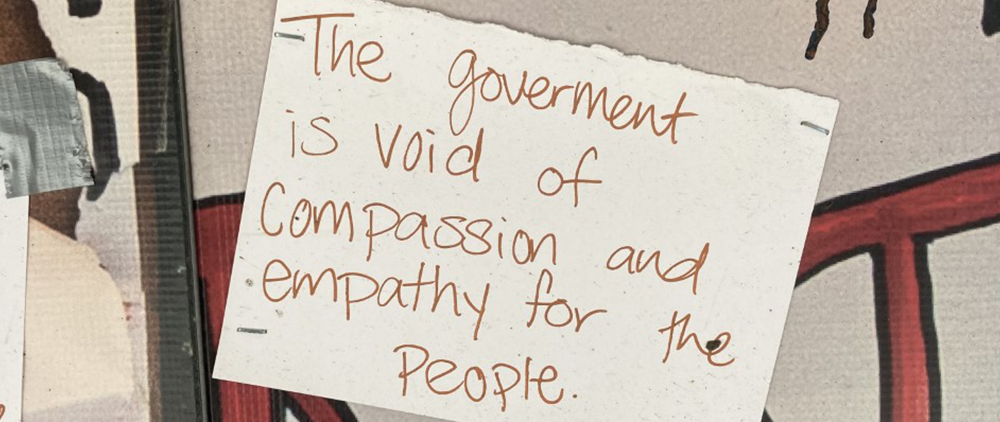 The goverment
is void of
Compassion and
empathy for the
People.